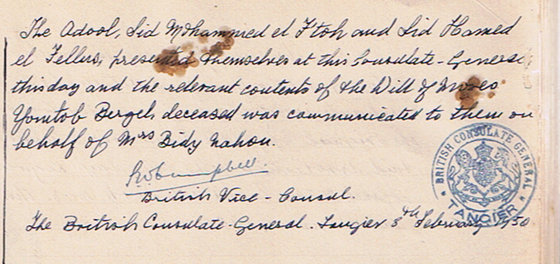 The Adool, Sid Mohammed el Ftoh and Sid Hamed
el Fellus, presented themselves at this Consulate-General
this day and the relevant contents of the Will of Moses
Yomtob Bergel, deceased was communicated to them on
behalf of Mrs Bidy Nahon.
Campbell.
British Vice-Consul.
The British Consulate-General. Tangier 3th February 1950
BRITISH CONSULATE GENERAL
TANGIER